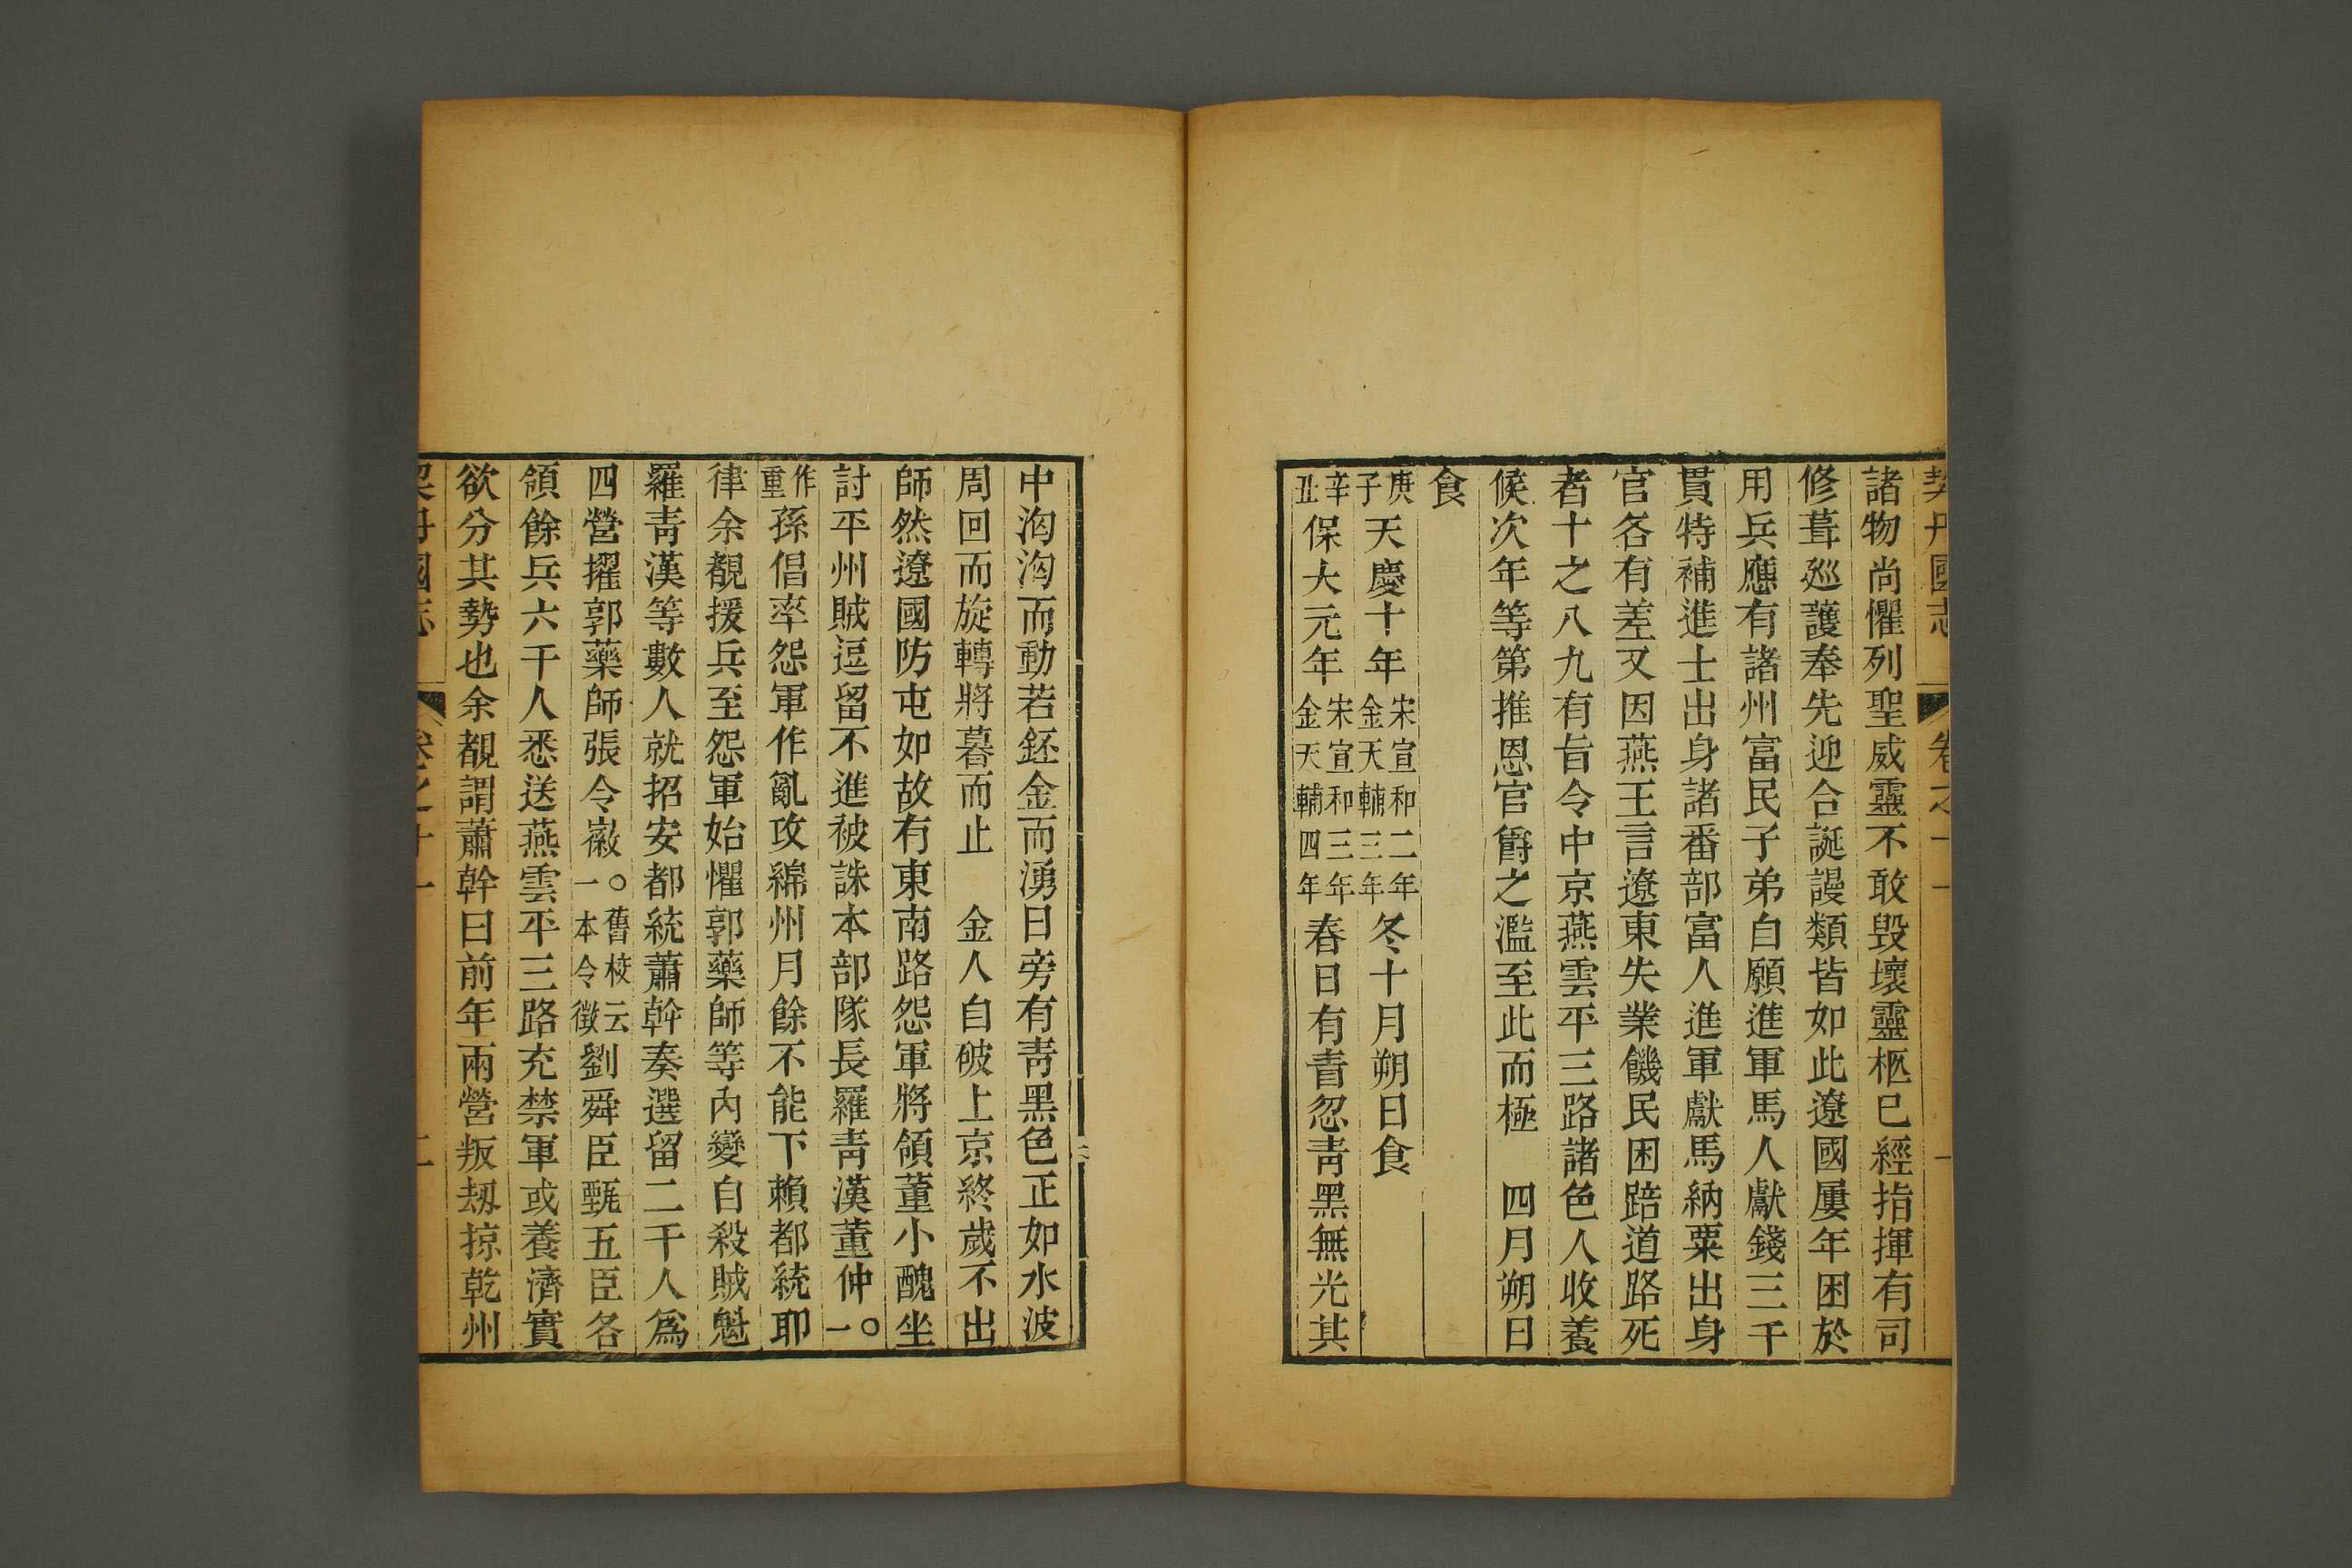 契丹國志 卷之十一 一
諸物尚懼列聖威靈不敢毀壞靈柩已經指揮有司
修葺廵護奉先迎合誕謾類皆如此遼國屢年困於
用兵應有諸州富民子弟自願進軍馬人獻錢三千
貫特補進士出身諸番部富人進軍獻馬納粟出身
官各有差又因燕王言遼東失業饑民困踣道路死
者十之八九有旨令中京燕雲平三路諸色人收養
候次年等第推恩官爵之濫至此而極 四月朔日
食
庚子天慶十年宋宣和二年金天輔三年冬十月朔日食
辛丑保大元年宋宣和三年金天輔四年春日有眚忽靑黑無光其
中洶洶而動若鉟金而湧日旁有靑黑色正如水波
周回而旋轉將暮而止 金人自破上京終歲不出
師然遼國防屯如故有東南路怨軍將領董小醜坐
討平州賊逗留不進被誅本部隊長羅靑漢董仲○一
作重孫倡率怨軍作亂攻綿州月餘不能下賴都統耶
律余覩援兵至怨軍始懼郭藥師等內變自殺賊魁
羅靑漢等數人就招安都統蕭幹奏選留二千人爲
四營擢郭藥師張令徽○舊校云一本令徵劉舜臣甄五臣各
領餘兵六千人悉送燕雲平三路充禁軍或養濟實
欲分其勢也余覩謂蕭幹曰前年兩營叛刼掠乾州
契丹國志 卷之十一 二